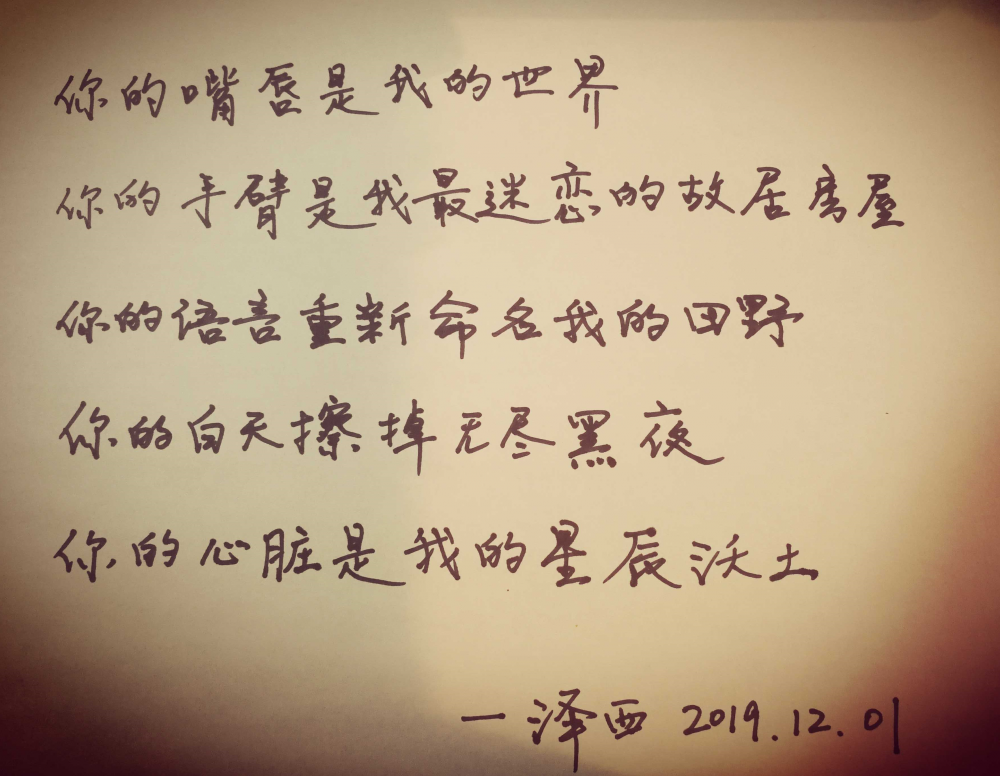 你的嘴唇是我的世界
你的手臂是我最迷恋的故居房屋
你的语言重新命名我的田野
你的白天擦掉无尽黑夜
你的心脏是我的星辰沃土
一泽西 2019.12.01